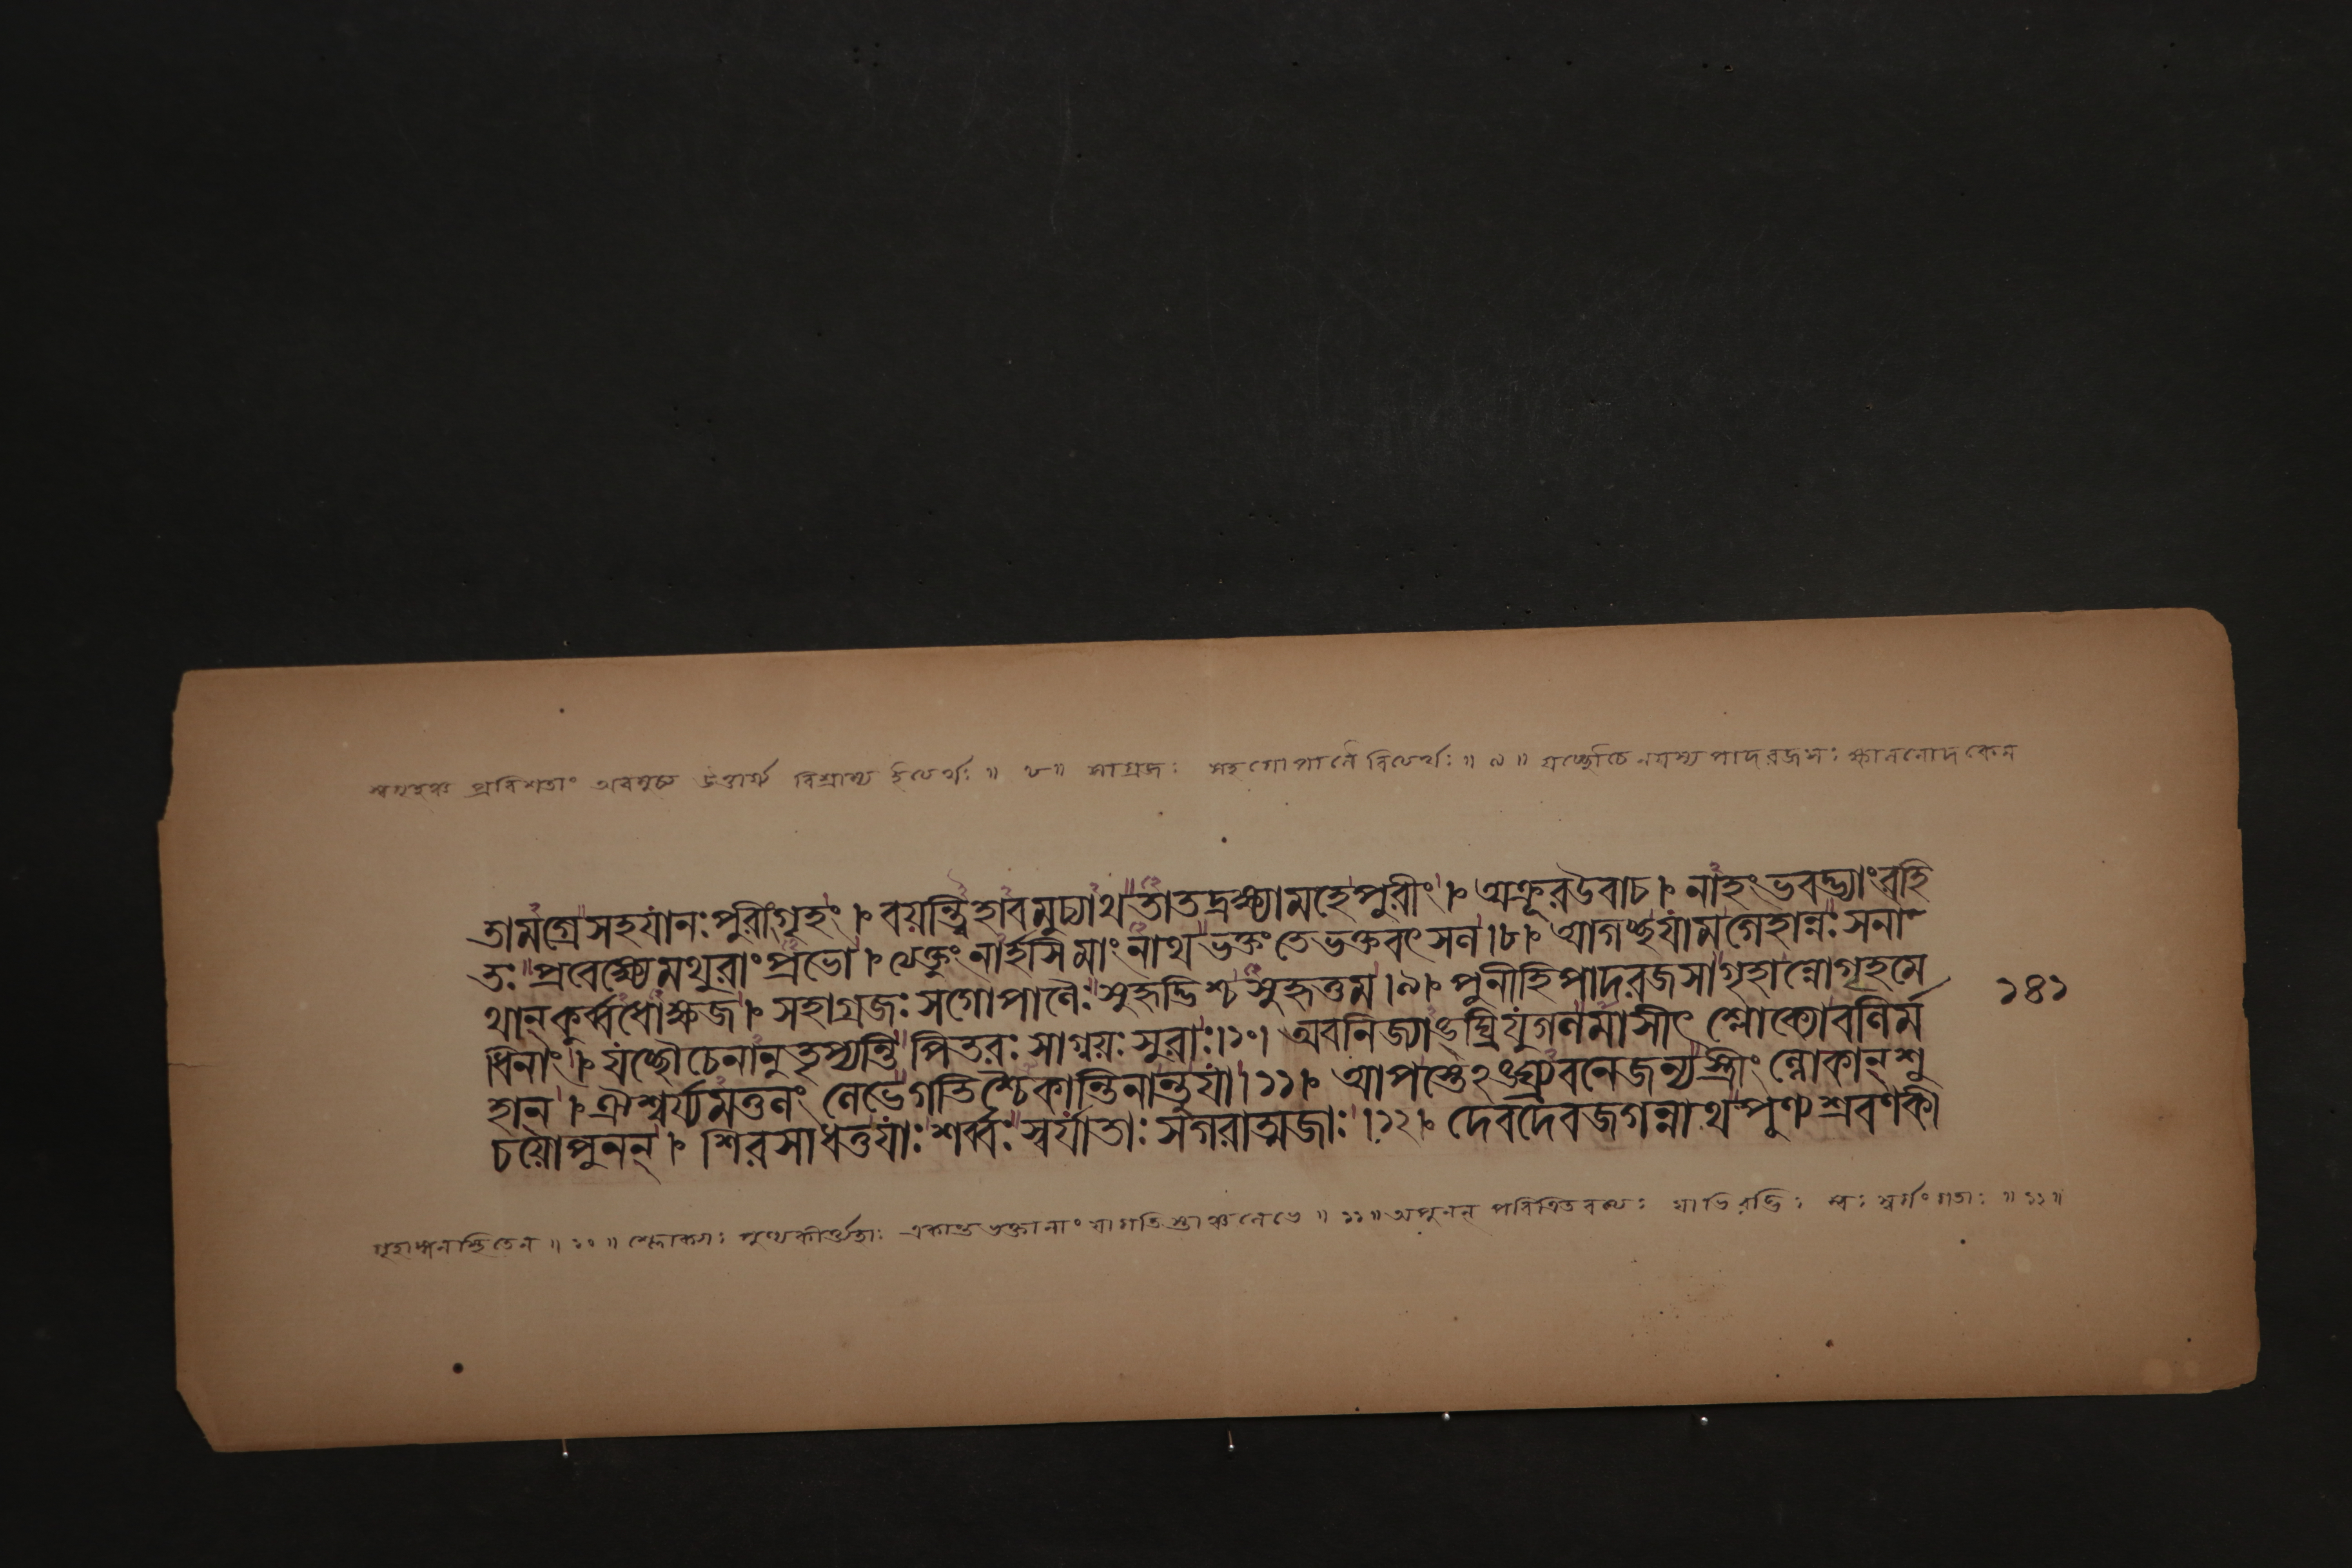 স্বগৃহঞ্চ প্রবিশতাং অবমুচ্য উত্তার্য্য বিশ্রাম্য ইত্যর্থঃ ॥ ৮॥ সাগ্রজঃ সহগোপালৈরিত্যর্থঃ ॥ ৯ ॥ যচ্ছৌচেনযস্য পাদরজসঃ ক্ষালনোদকেন
তামগ্রেসহযানঃপুরীংগৃহং । বয়ন্ত্বিহাবমুচ্যাথ তাতদ্রক্ষ্যামহেপুরীং । অক্রূরউবাচ । নাহংভবদ্ভ্যাংরহি
তঃ প্রবেক্ষ্যেমথুরাংপ্রভো । ত্যেক্তুংনার্হসিমাংনাথ ভক্তংতেভক্তবৎসল ।৮। আগচ্ছযামগেহান্নঃসনা
থান্কুর্ব্বধোক্ষজ । সহাগ্রজঃসগোপালৈঃসুহৃদ্ভিশ্চসুহৃত্তম ।৯। পুনীহিপাদরজসাগৃহান্নোগৃহমে
ধিনাং । যচ্ছৌচেনানুতৃপ্যন্তি পিতরঃ সাগ্নয়ঃ সুরাঃ।১০। অবনিজ্যাঙ্ঘ্রিযুগলমাসীৎ শ্লোক্যোবলির্ম
হান । ঐশ্বর্য্যমতুলং লেভেগতিশ্চৈকান্তিনান্তুযা ।১১। আপস্তেঽঙ্ঘ্র্যবনেজন্যস্ত্রীংল্লোকান্শু
চয়োপুনন্ । শিরসাধত্তযাঃ শর্ব্বঃ স্বর্যাতাঃ সগরাত্মজাঃ ।১২। দেবদেবজগন্নাথ পুণ্যশ্রবণকী
১৪১
গৃহাঙ্গনাস্থিতেন ॥ ১০ ॥ শ্লোক্যঃ পুণ্যকীর্ত্ত্যর্হাঃ একান্তভক্তানাং যাগতিস্তাঞ্চলেভে ॥ ১১ ॥ অপুনন্ পবিত্রিতবত্যঃ যাভিরদ্ভিঃ স্বঃ স্বর্গং গতাঃ ॥ ১২ ॥